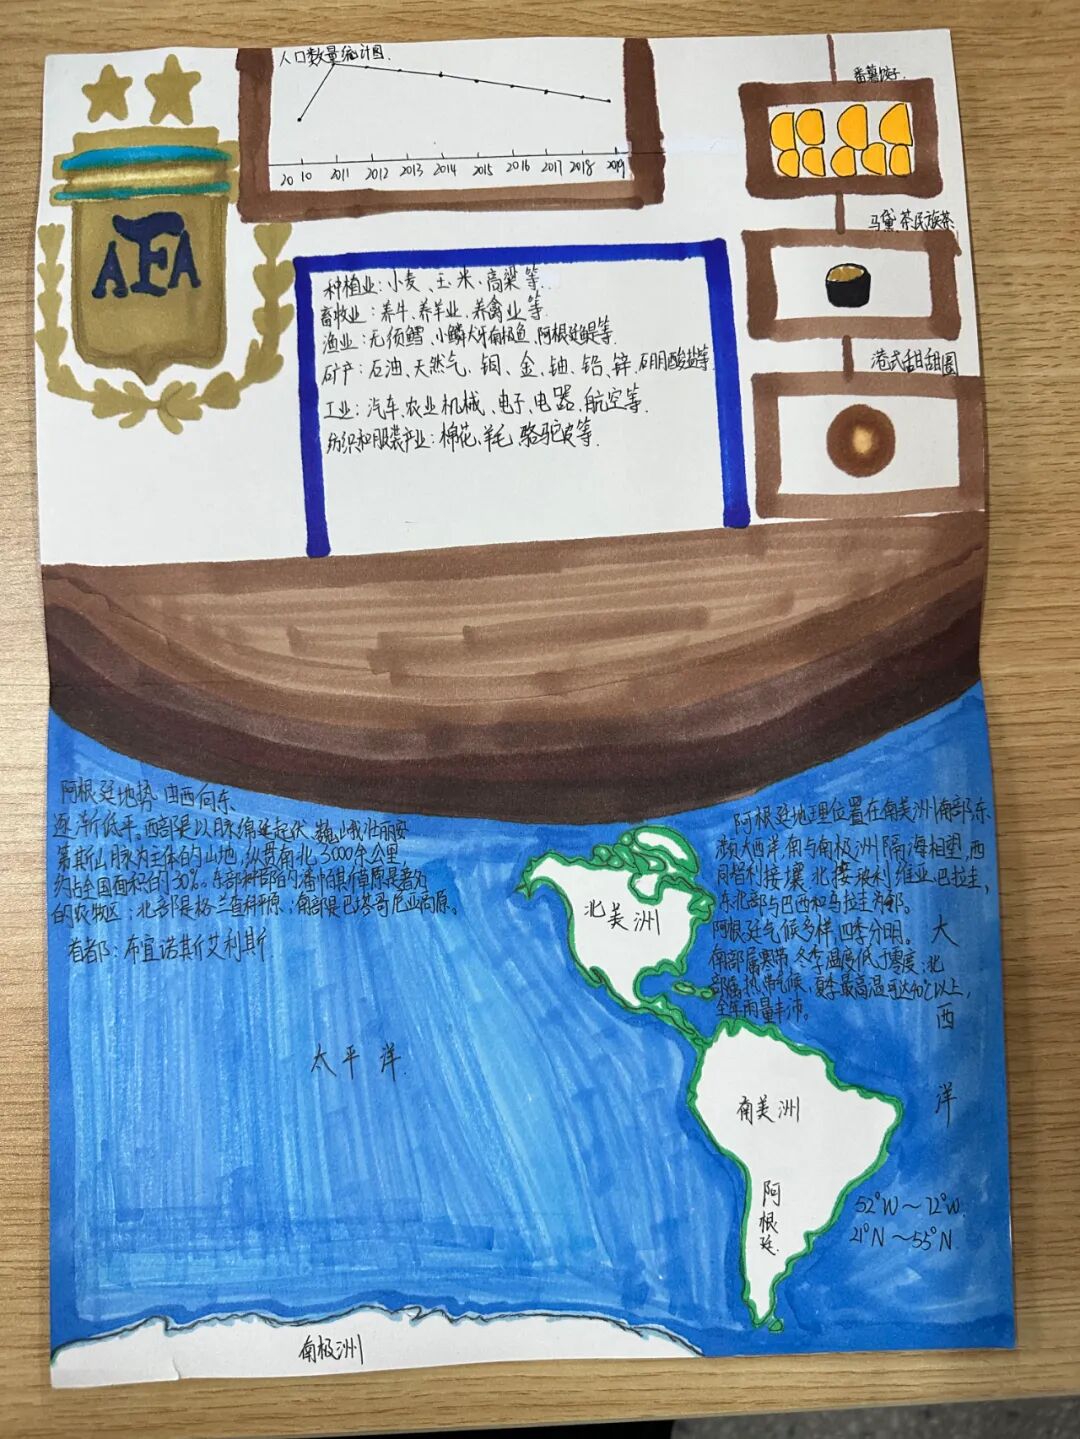 人口数量统计图.
2010 2011 2012 2013 2014 2015 2016 2017 2018 2019
AFA
番薯饺子.
马黛茶民族茶
港式甜甜圈
种植业:小麦、玉米、高粱等.
畜牧业:养牛、养羊业、养禽业等.
渔业:无须鳕、小鳞犬牙南极鱼、阿根廷鳀等.
矿产:石油、天然气、铜、金、铀、铅、锌、硼酸盐等.
工业:汽车、农业机械、电子、电器、航空等.
纺织和服装产业:棉花、羊毛、骆驼皮等.
阿根廷地势 由西向东
逐渐低平。西部是以脉绵延起伏、巍峨壮丽安
第斯山脉为主体的山地,纵贯南北3000余公里,
约占全国面积的30%。东部和中部的潘帕斯草原是著名
的农牧区;北部是格兰查科平原;南部是巴塔哥尼亚高原。
首都:布宜诺斯艾利斯.
阿根廷地理位置在南美洲南部,东
濒大西洋,南与南极洲隔海相望,西
同智利接壤,北接玻利维亚、巴拉圭,
东北部与巴西和乌拉圭为邻。
阿根廷气候多样,四季分明。
南部属寒带,冬季温度低于零度;北
部属热带气候,夏季最高温可达40℃以上,
全年雨量丰沛。
北美洲
大西洋
太平洋.
南美洲
阿根廷.
52°W~72°W.
21°N~55°N.
南极洲